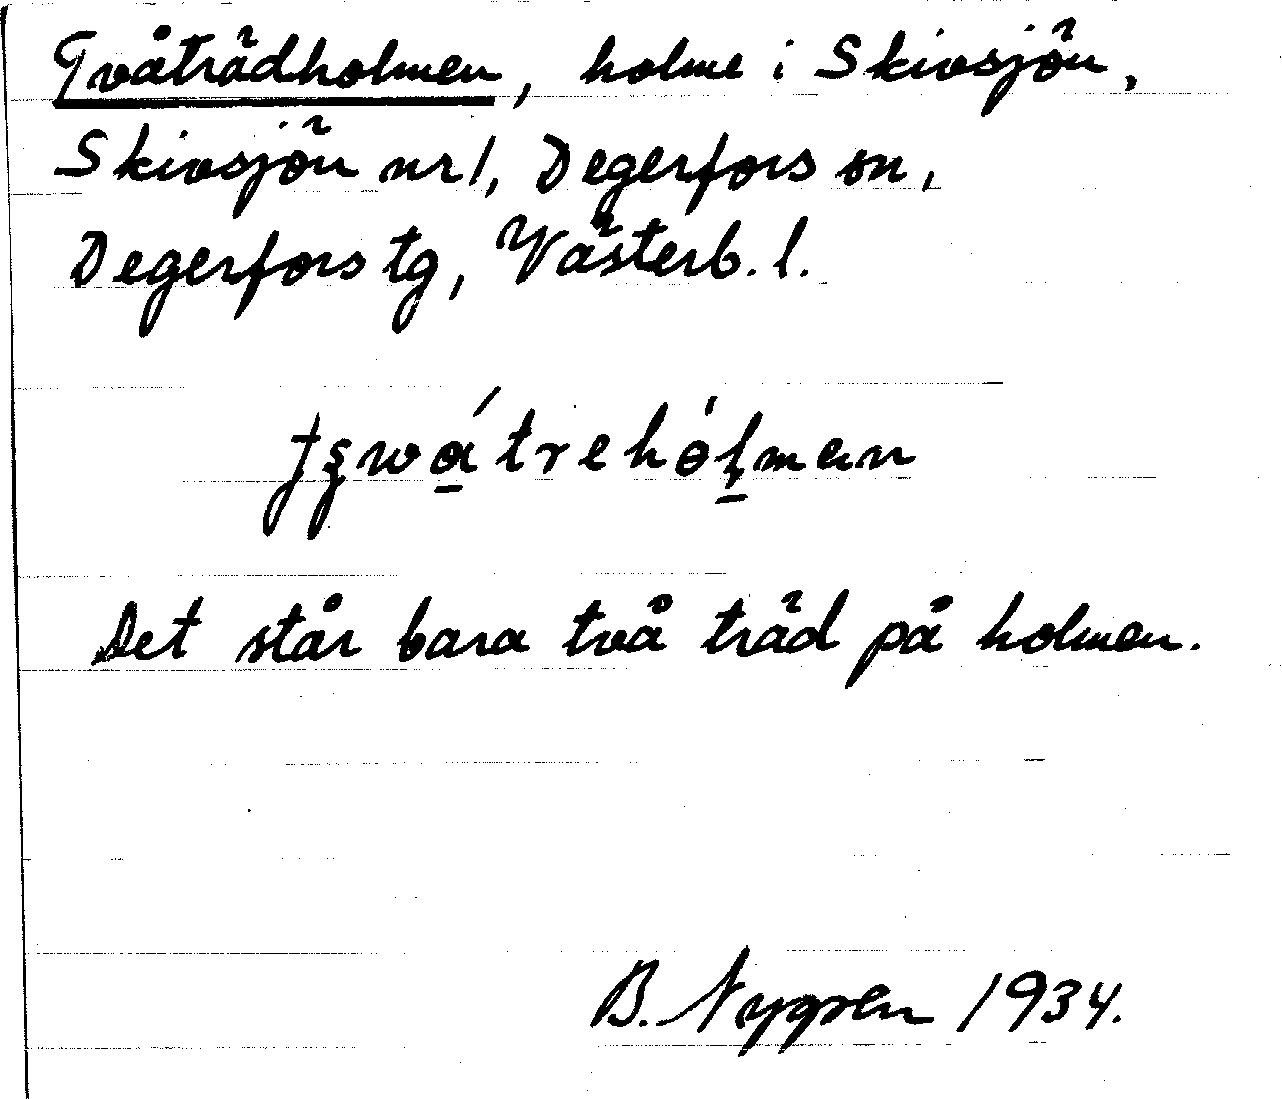 Tvåträdholmen, holme i Skivsjön,
Skivsjön nr 1, Degerfors sn,
Degerfors tg, Västerb. l.
Det står bara två träd på holmen.
B. Nygren 1934.